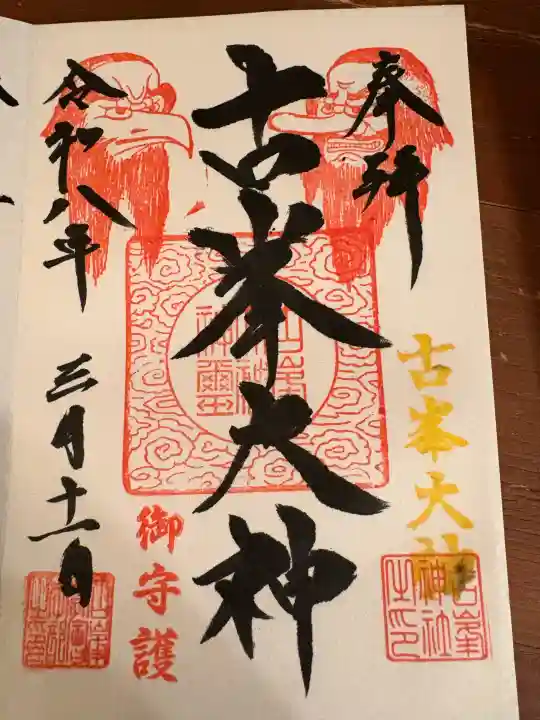 奉拝
古峯大神
古峯大神
御守護
令和八年
三月十一日
古峯神社之印